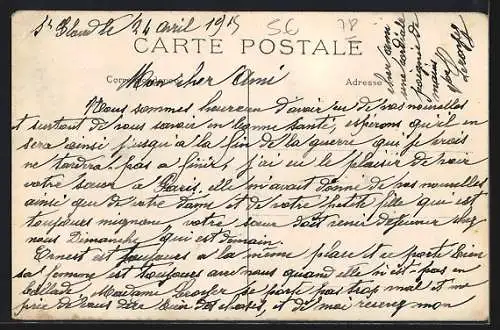 St Cloud le 24 avril 1915
56
78
CARTE POSTALE
Correspondance
Adresse
Mon cher Ami
Nous sommes heureux d'avoir eu de vos nouvelles
et surtout de vous savoir en bonne santé, espérons qu'il en
sera ainsi jusqu'a la fin de la guerre qui je crois
ne tardera pas a finir, j'ai eu le plaisir de voir
votre sœur a Paris. elle m'avait donné de vos nouvelles
ainsi que de votre dame et de votre petite fille qui est
toujours mignonne votre sœur doit venir dejeuner chez
nous Dimanche qui est demain.
Ernest est toujours a la même place et se porte bien
sa femme est toujours avec nous quand elle n'est pas en
Madame se porte pas trop mal et me
prie de vous dire bien des choses, et de moi recevez mon
cher ami
une cordiale
poignée de
main